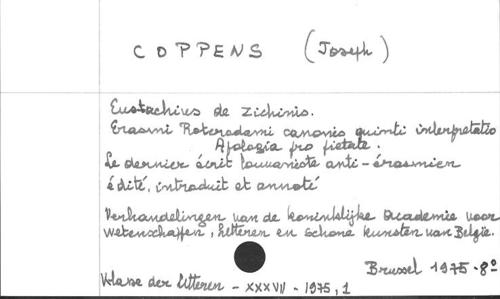 COPPENS (Joseph)
Eustachius de Zichinis.
Erasmi Roterodami canonis quinti interpretatio
Apologia pro pietate.
Le dernier écrit louvaniste anti-érasmien
édité, introduit et annoté
Verhandelingen van de koninklijke Academie voor
wetenschappen, letteren en schone kunsten van Belgie.
Brussel 1975 - 8°
Klasse der letteren - XXXVII - 1975, 1